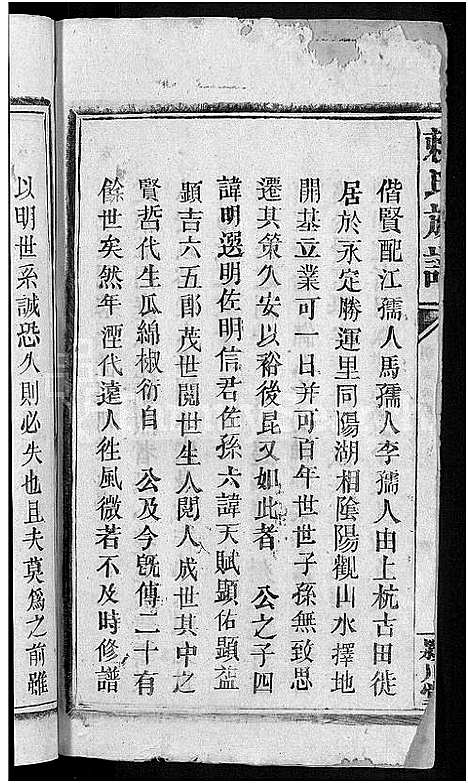 賴氏族譜
偕賢配江孺人馬孺人李孺人由上杭古田徙
居於永定勝運里同陽湖相陰陽觀山水擇地
開基立業可一日并可百年世世子孫無致思
遷其策久安以裕後昆又如此者 公之子四
諱明選明佐明信君佐孫六諱天賦顯佑顯益
顯吉六五郎茂世閱世生人閱人成世其中之
賢哲代生瓜綿椒衍自 公及今旣傳二十有
餘世矣然年湮代遠人徃風微若不及時修譜
以明世系誠恐久則必失也且夫莫爲之前雖